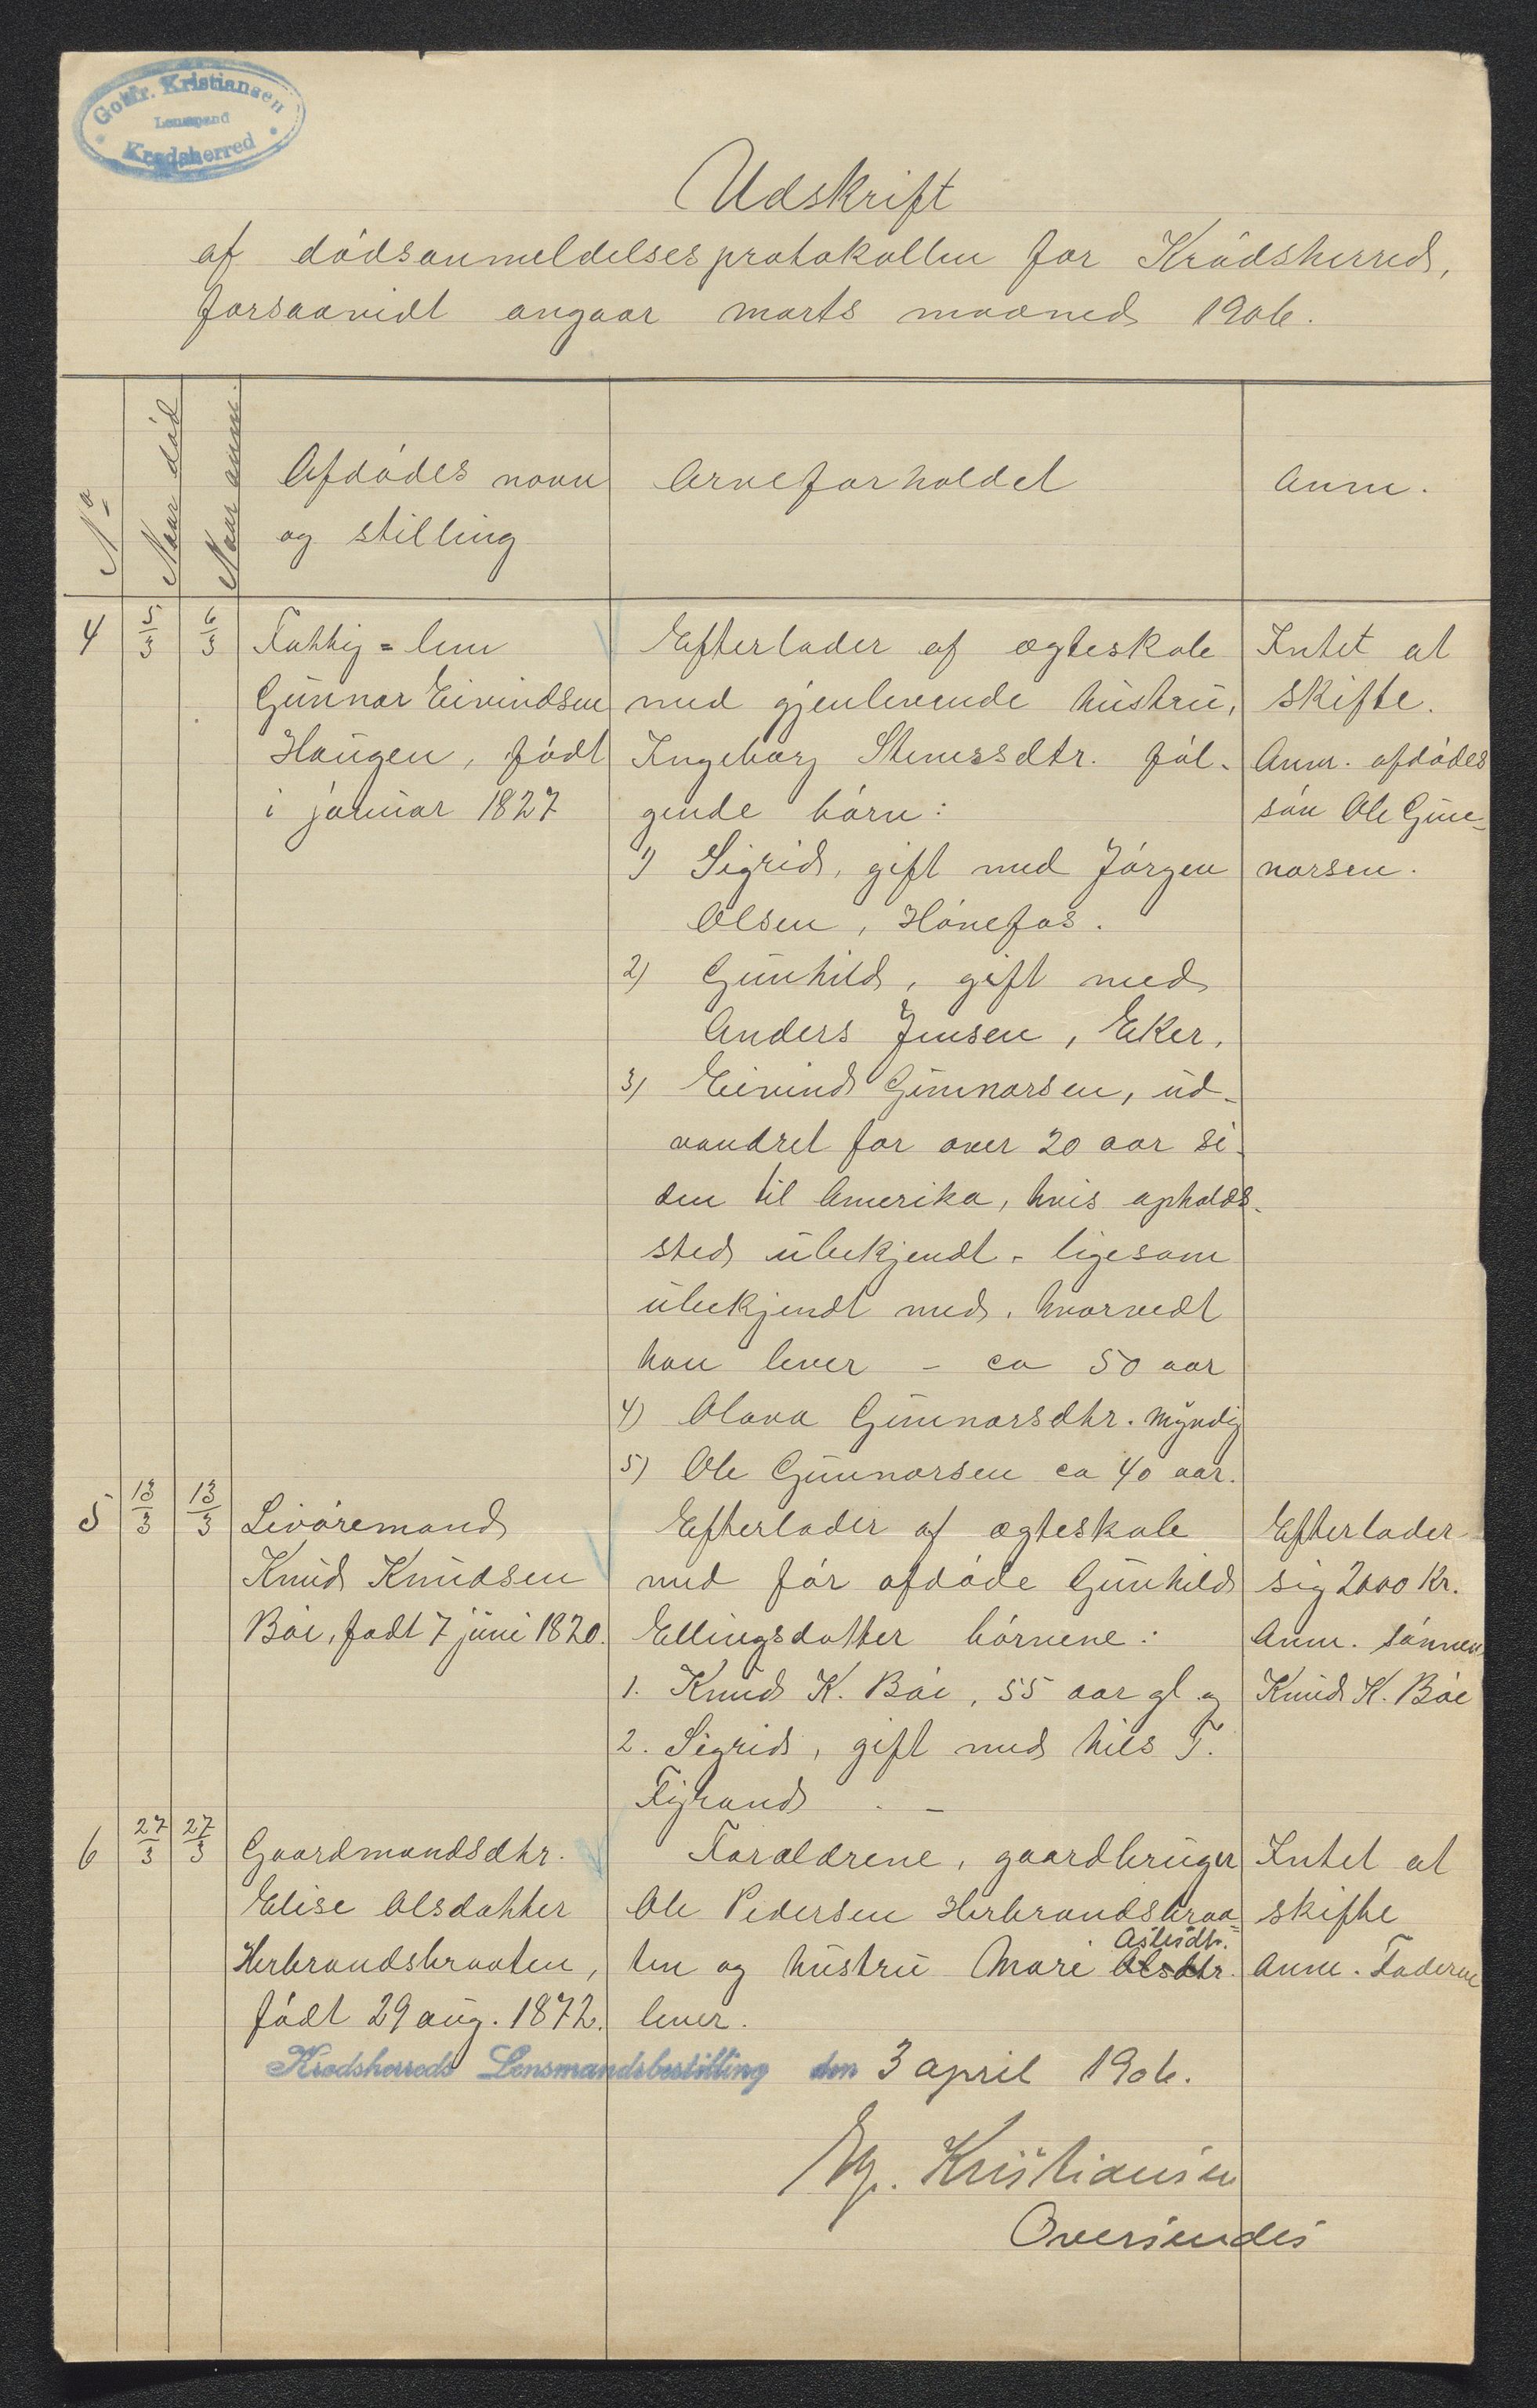 Gottfr. Kristiansen
Lensmand
Krødsherred
Udskrift
af dödsanmeldelsesprotokollen for Krödsherred,
forsaavidt angaar marts maaned 1906.
No
Naar död
Naar anm.
Afdödes navn
og stilling
Arveforholdet
Anm.
4
5/3
6/3
Fattig=lem
Gunnar Eivindsen
Haugen, födt
i januar 1827
Efterlader af ægteskab
med gjenlevende hustru,
Ingeborg Stenersdtr. föl-
gende börn:
1) Sigrid, gift med Jörgen
Olsen, Hönefos.
2) Gunhild, gift med
Anders Jensen, Eker.
3) Eivind Gunnarsen, ud-
vandret for over 20 aar si-
den til Amerika, hvis opholds-
sted ubekjendt - ligesom
ubekjendt med, hvorvidt
han lever - ca 50 aar
4) Olava Gunnarsdtr. myndig
5) Ole Gunnarsen ca 40 aar.
Intet at
skifte.
Anm. afdödes
sön Ole Gun-
narsen.
5
13/3
13/3
Livöremand
Knud Knudsen
Böe, født 7 juni 1820.
Efterlader af ægteskab
med för afdöde Gunhild
Ellingsdatter börnene:
1. Knud K. Böe, 55 aar gl. og
2. Sigrid, gift med Nils T.
Fyrand. -
Efterlader
sig 2000 Kr.
Anm. sönnen
Knud K. Böe
6
27/3
27/3
Gaardmandsdtr.
Elise Olsdatter
Herbrandsbraaten,
födt 29 aug. 1872.
Forældrene, gaardbruger
Ole Pedersen Herbrandsbraa-
ten og hustru Mari Olsdtr. Asleidtr.
lever.
Intet at
skifte
Anm. Faderen
Krødsherreds Lensmandsbestilling den 3 april 1906.
Kristiansen
Oversendes